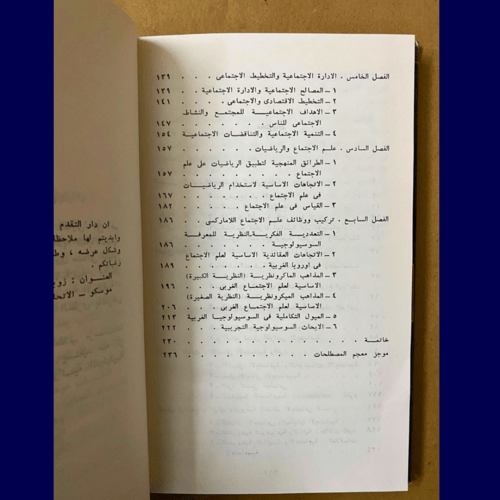 الفصل الخامس . الادارة الاجتماعية والتخطيط الاجتماعى . . . ١٣٩
١ – المصالح الاجتماعية والادارة الاجتماعية . . . . ١٣٩
٢ – التخطيط الاقتصادى والاجتماعى . . . . . ١٤١
٣ – الاهداف الاجتماعية للمجتمع والنشاط
الاجتماعى للناس . . . . . . . ١٤٧
٤ – التنمية الاجتماعية والتناقضات الاجتماعية ١٥٤
الفصل السادس . علم الاجتماع والرياضيات . . . . . ١٥٧
١ – الطرائق المنهجية لتطبيق الرياضيات على علم
الاجتماع . . . . . . . . ١٥٧
٢ – الاتجاهات الاساسية لاستخدام الرياضيات
فى علم الاجتماع . . . . . . . ١٦٧
٣ – القياس فى علم الاجتماع . . . . . . ١٨٢
الفصل السابع . تركيب ووظائف علم الاجتماع اللاماركسى . ١٨٦
١ – التعددية الفكرية.النظرية للمعرفة
السوسيولوجية . . . . . . . ١٨٦
٢ – الاتجاهات العقائدية الاساسية لعلم الاجتماع
فى اوروبا الغربية . . . . . . ١٨٩
٣ – المذاهب الماكرونظرية (النظرية الكبيرة)
الاساسية لعلم الاجتماع الغربى . . . . ١٩٦
٤ – المذاهب الميكرونظرية (النظرية الصغيرة)
الاساسية لعلم الاجتماع الغربى . . . . ٢٠٦
٥ – الميول التكاملية فى السوسيولوجيا الغربية ٢١٣
٦ – الابحاث السوسيولوجية التجريبية . . . ٢٢٢
خاتمة . . . . . . . . . . . ٢٣٠
موجز معجم المصطلحات . . . . . . . . ٢٣٦
ان دار التقدم
وابديتم لها ملاحظا
وشكل عرضه ، وط
رغباتكم .
العنوان : زوبو
موسكو – الاتحا